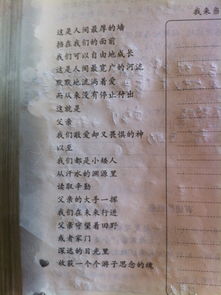 我来当
这是人间最厚的墙
挡在我们的面前
我们可以自由地成长
这是人间最宽广的河流
默默地流淌着爱
而从来没有停止付出
这就是
父亲
我们敬爱却又畏惧的神
以至
我们都是小矮人
从汗水的渊源里
读取辛勤
父亲的大手一挥
我们在未来行进
父亲守望着田野
或者家门
深远的目光里
收获一个个游子思念的魂